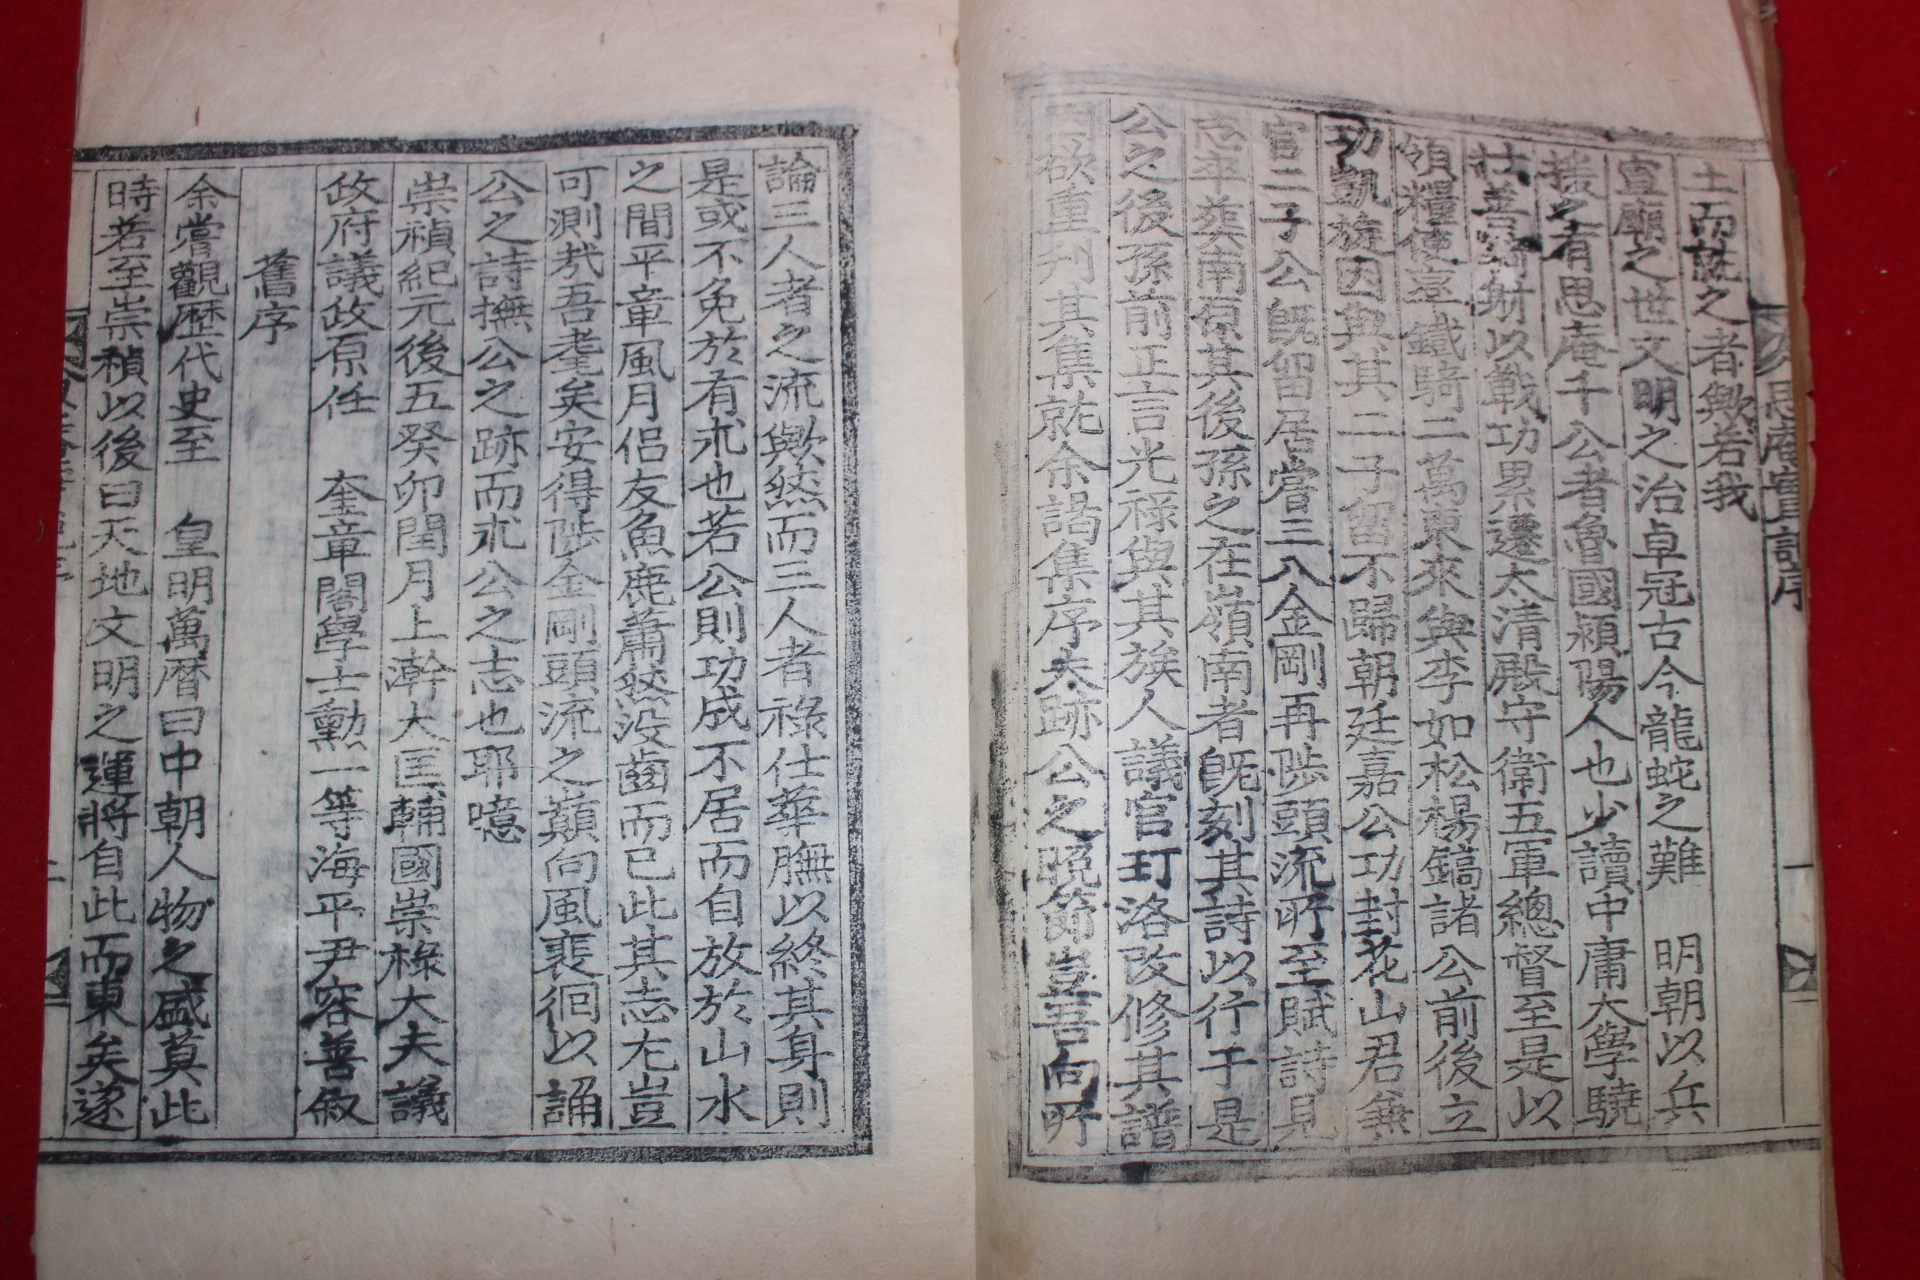 思庵實記序
一
土而誌之者歟若我
宣廟之世文明之治卓冠古今龍蛇之難 明朝以兵
援之有思庵千公者魯國潁陽人也少讀中庸大學驍
壯善射以戰功累遷太清殿守衛五軍總督至是以
領糧使率鐵騎二萬東來與李如松楊鎬諸公前後立
功凱旋因與其二子留不歸朝廷嘉公功封花山君無
官二子公旣留居嘗三入金剛再陟頭流所至賦詩見
志卒葬南原其後孫之在嶺南者旣刻其詩以行于是
公之後孫前正言光祿與其族人議官玎洛改修其譜
因欲重刊其集就余謁集序夫跡公之晩節豈吾向所
論三人者之流歟然而三人者祿仕華膴以終其身則
是或不免於有朮也若公則功成不居而自放於山水
之間平章風月侶友魚鹿蕭然沒齒而已此其志尤豈
可測哉吾耄矣安得陟金剛頭流之巔向風裵徊以誦
公之詩撫公之跡而朮公之志也耶噫
崇禎紀元後五癸卯閏月上澣大匡輔國崇祿大夫議
政府議政原任 奎章閣學士勳一等海平尹容善敘
舊序
余嘗觀歷代史至 皇明萬曆曰中朝人物之盛莫此
時若至崇禎以後曰天地文明之運將自此而東矣遂